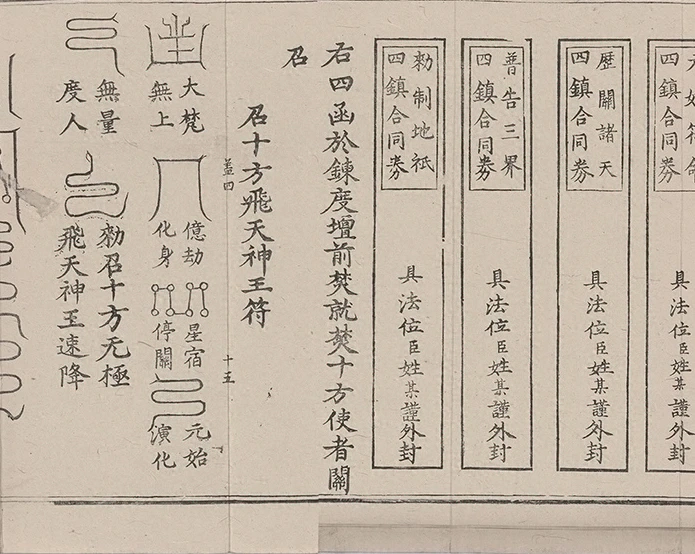 元始符命
四鎮合同券
具法位臣姓某謹外封
歷關諸天
四鎮合同券
具法位臣姓某謹外封
普告三界
四鎮合同券
具法位臣姓某謹外封
勑制地祇
四鎮合同券
具法位臣姓某謹外封
右四函於鍊度壇前焚就焚十方使者關
召
召十方飛天神王符
蓋四
十五
大梵
無上
億劫
化身
星宿
停關
元始
演化
無量
度人
勑召十方无極
飛天神王速降